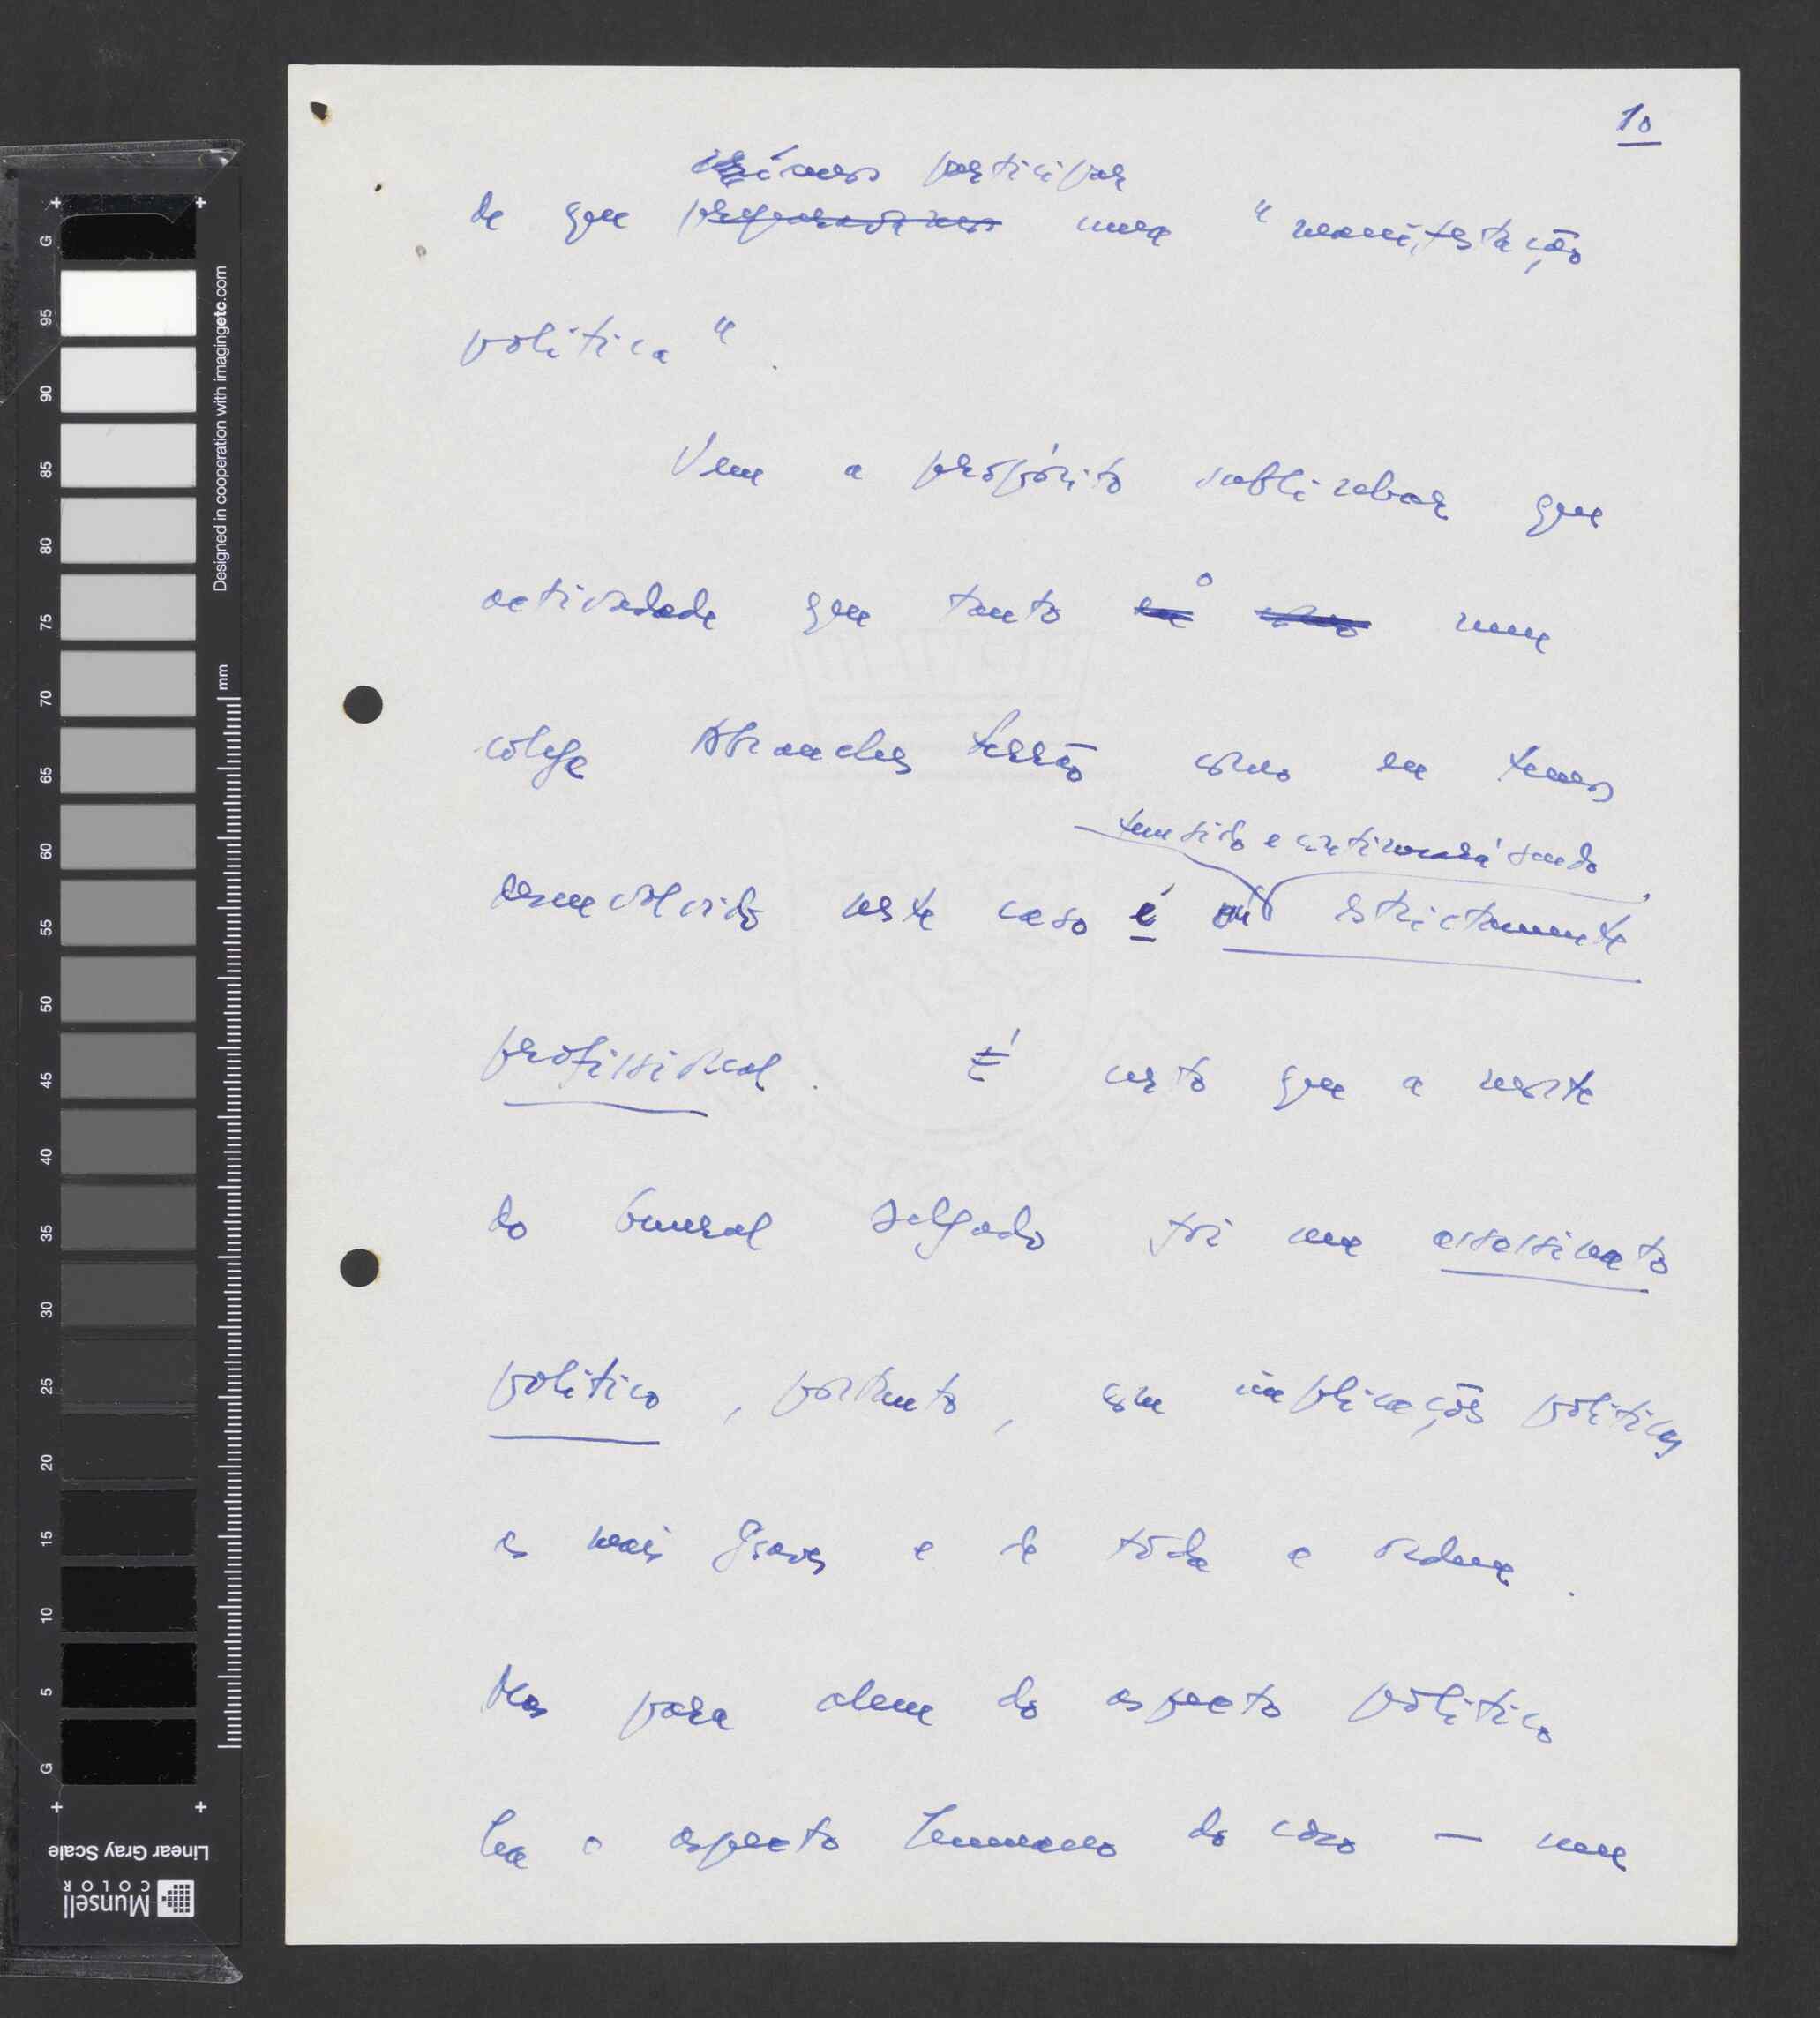 10
viemos participar
de que preparavamos uma "manifestação
politica".
Vem a propósito sublinhar que
actividade que tanto eu como o meu
colega Abranches Ferrão como eu temos
tem sido e continuará sendo
desenvolvido neste caso é estrictamente
profissional. É certo que a morte
do General Delgado foi um assassinato
politico, portanto, com implicações politicas
as mais graves e de toda a ordem.
Mas para alem do aspecto politico
ha o aspecto humano do caso — um
G 95 90 85 80 75 70 65 60 55 50 45 40 35 30 25 20 15 10 5 G
Designed in cooperation with imagingetc.com
mm
Linear Gray Scale
Munsell
COLOR